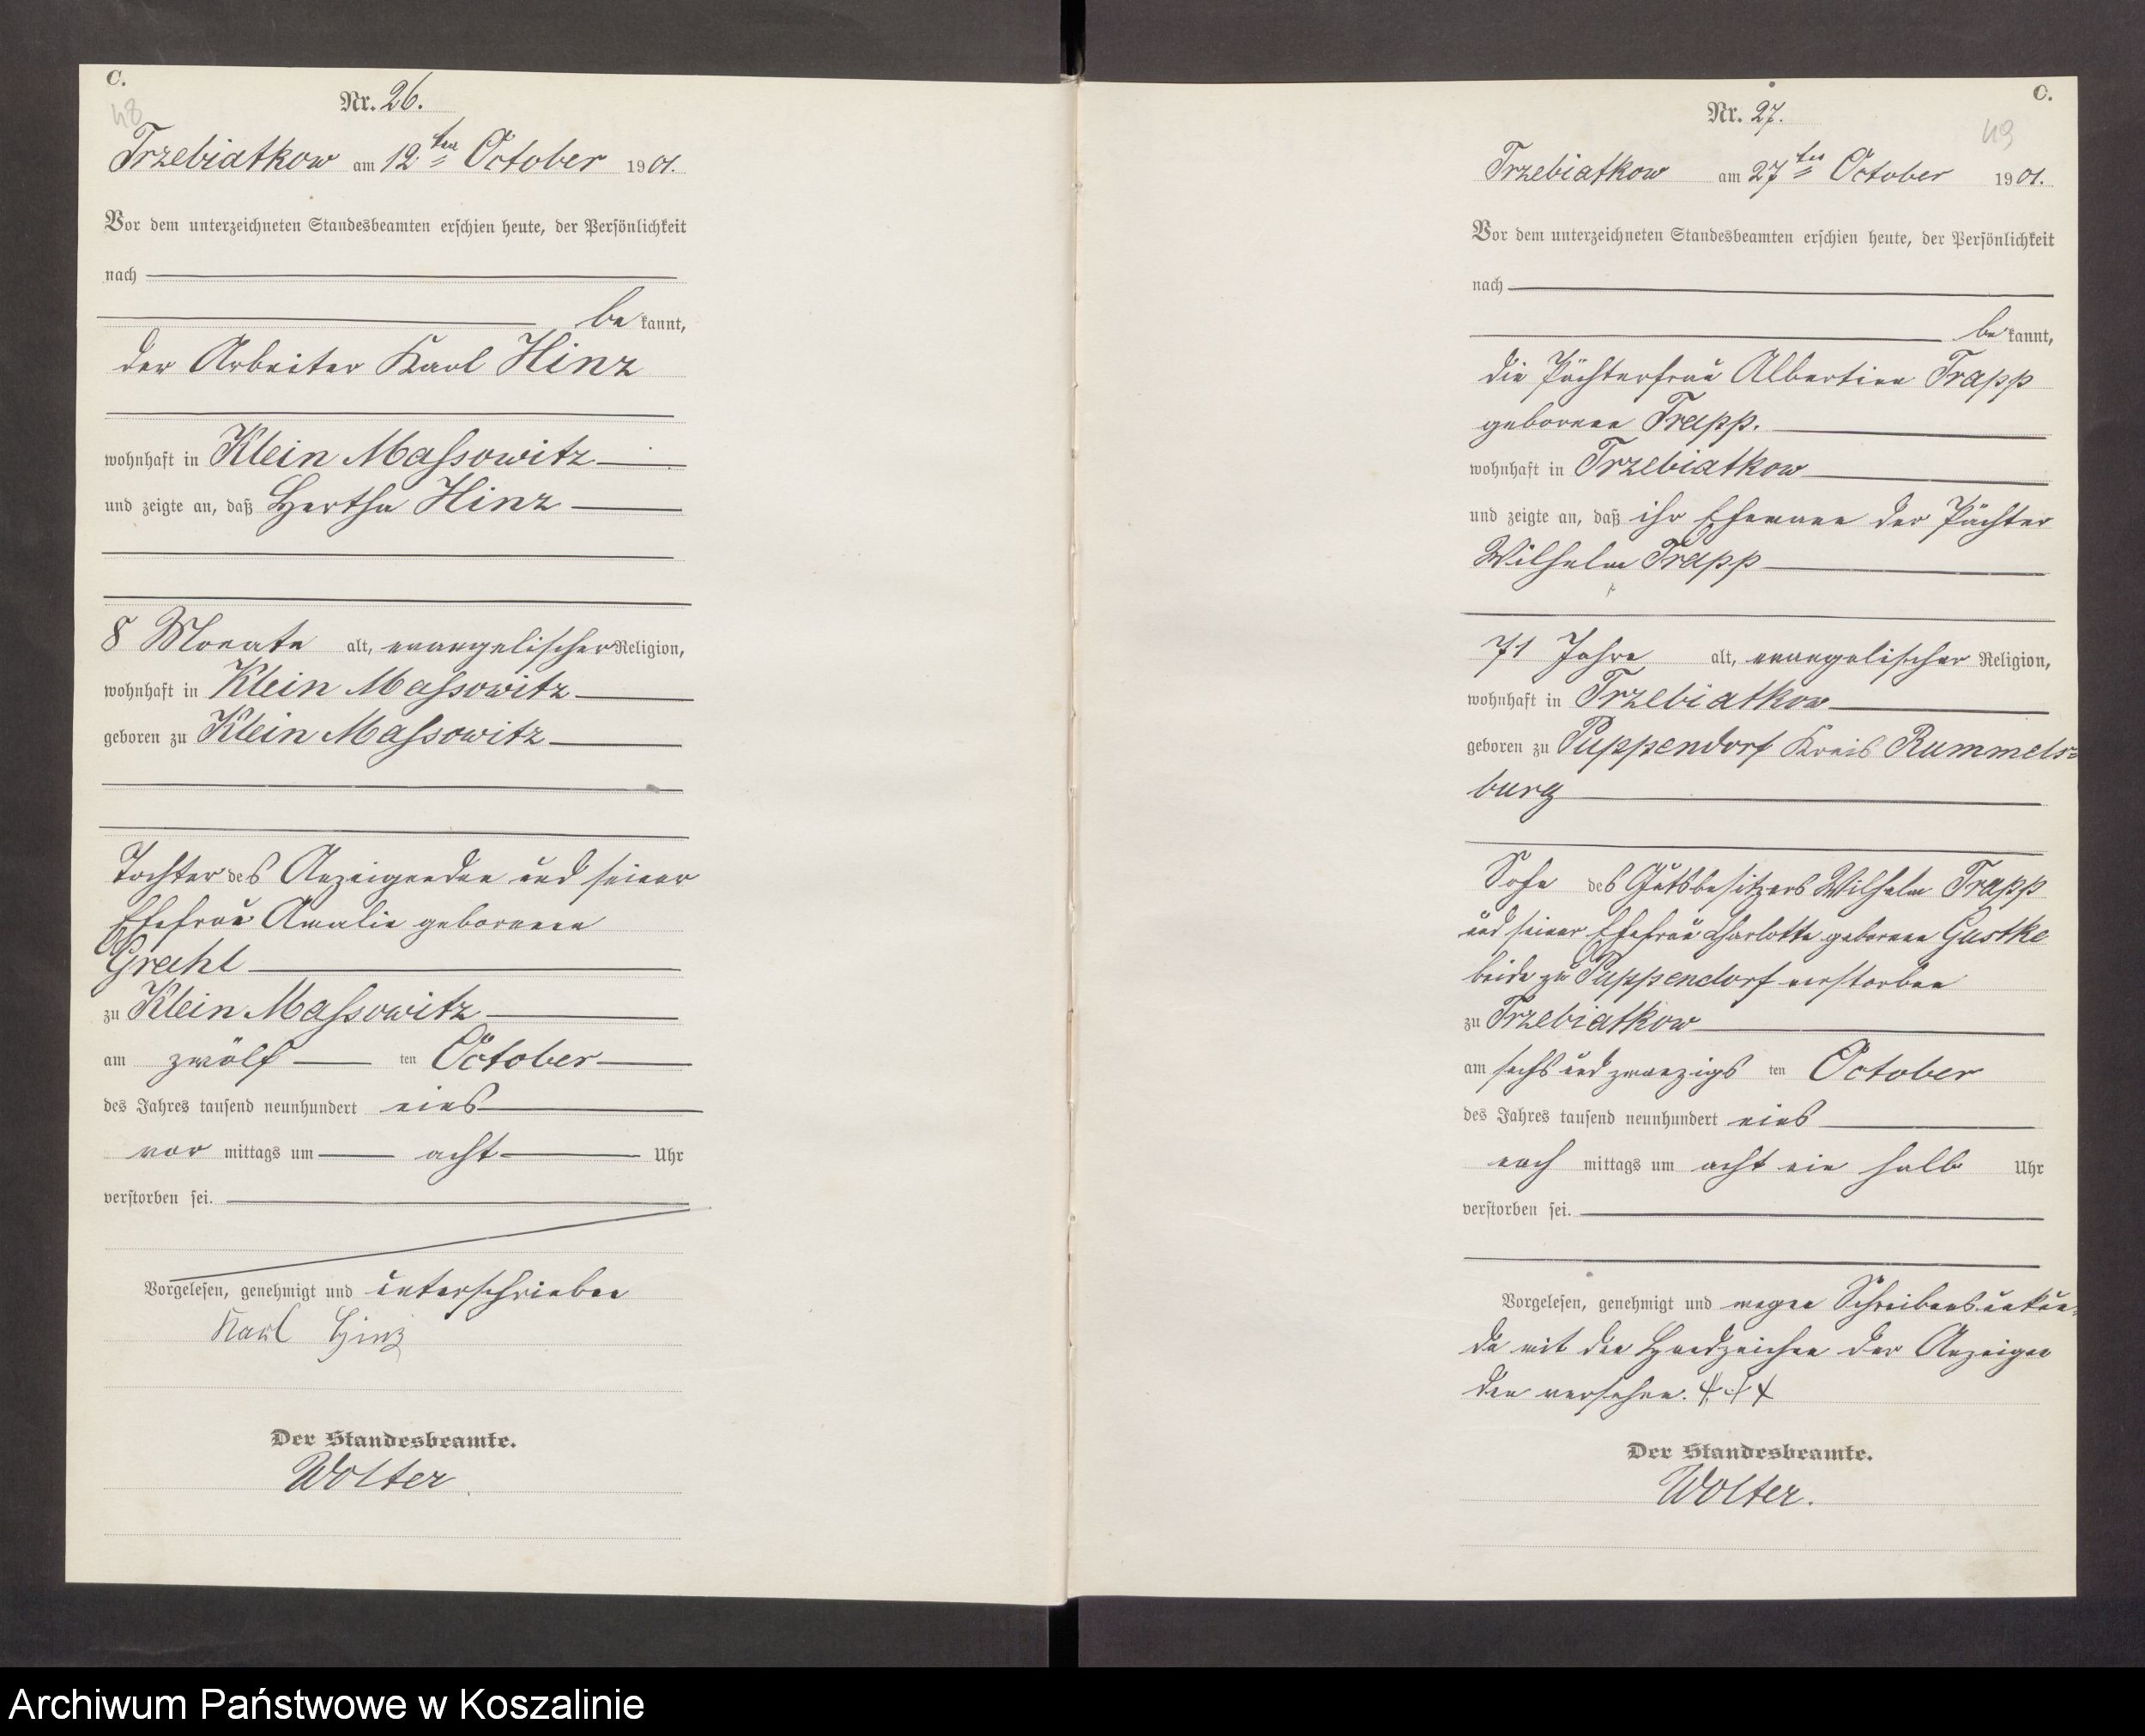 C.
48
Nr. 26.
Trzebiatkow am 12ten October 1901.
Vor dem unterzeichneten Standesbeamten erschien heute, der Persönlichkeit
nach
be kannt,
der Arbeiter Karl Hinz
wohnhaft in Klein Massowitz
und zeigte an, daß Hertha Hinz
8 Monate alt, evangelischer Religion,
wohnhaft in Klein Massowitz
geboren zu Klein Massowitz
Tochter des Anzeigenden und seiner
Ehefrau Amalie geborenen
Grahl
zu Klein Massowitz
am zwölf ten October
des Jahres tausend neunhundert eins
vor mittags um acht Uhr
verstorben sei.
Vorgelesen, genehmigt und unterschrieben
Karl Hinz
Der Standesbeamte.
Wolter
C.
49
Nr. 27.
Trzebiatkow am 27ten October 1901.
Vor dem unterzeichneten Standesbeamten erschien heute, der Persönlichkeit
nach
be kannt,
die Pächterfrau Albertine Trapp
geborene Trapp.
wohnhaft in Trzebiatkow
und zeigte an, daß ihr Ehemann der Pächter
Wilhelm Trapp
71 Jahre alt, evangelischer Religion,
wohnhaft in Trzebiatkow
geboren zu Puppendorf Kreis Rummels=
burg
Sohn des Gutsbesitzers Wilhelm Trapp
und seiner Ehefrau Charlotte geborene Gustke
beide zu Puppendorf verstorben
zu Trzebiatkow
am sechs und zwanzigs ten October
des Jahres tausend neunhundert eins
nach mittags um acht ein halb Uhr
verstorben sei.
Vorgelesen, genehmigt und wegen Schreibensunkun-
de mit den Handzeichen der Anzeigen
den versehen. +++
Der Standesbeamte.
Wolter.
Archiwum Państwowe w Koszalinie